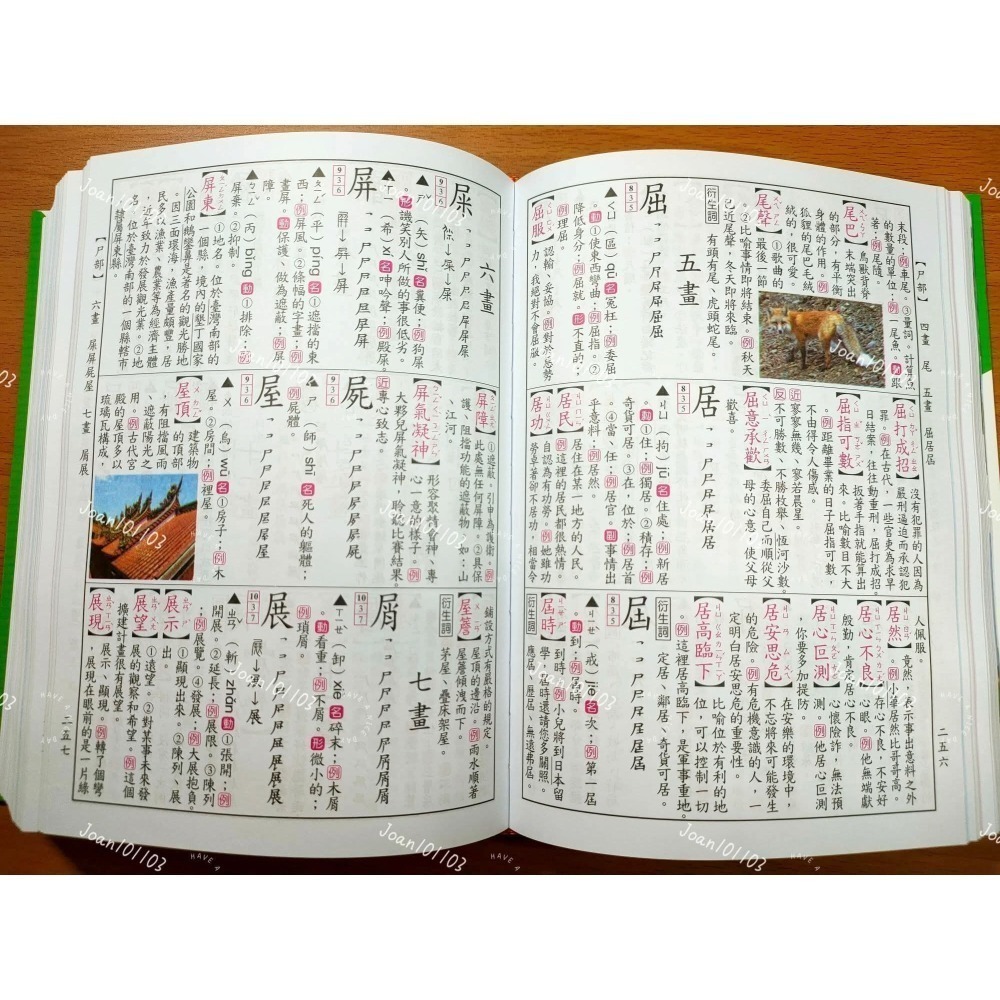 【尸部】 四畫 尾 五畫 屈居屆 二五六
末段；例車尾。③量詞。計算魚
的數量的單位；例一尾魚。
著；例尾隨。
【尾巴】鳥獸背脊末端突出
的部分，有平衡
身體的作用。例
狐狸的尾巴毛絨
絨的，很可愛。
【尾聲】①歌曲的最後一節
②比喻事情即將結束。例秋天
已近尾聲，冬天即將來臨。
衍生詞 有頭有尾、虎頭蛇尾。
五畫
屈 835
▲ㄑㄩ（區）qū 名冤枉；例委屈
。動①使東西彎曲；例屈指。②
降低身分；例屈就。形不直的；
例理屈。
【屈服】認輸、妥協。例對於惡勢力，我絕對不會屈服。
【屈打成招】沒有犯罪的人因為嚴刑逼迫而承認犯
罪。例在古代，一些官吏為求早
日結案，往往動用重刑，屈打成招。
【屈指可數】扳著手指就能算出來。比喻數目不大
。例距離畢業的日子屈指可數，
不由得令人傷感。
近 寥寥無幾、寥若晨星
反 不可勝數、不勝枚舉、恆河沙數。
【屈意承歡】委屈自己而順從父母的心意，使父母
歡喜。
居 835
▲ㄐㄩ（拘）jū 名住處；例新居
。動①住；例獨居。②積存；例
奇貨可居。③在，位於；例居首
。④當，任；例居官。副事情出
乎意料；例居然。
【居民】居住在某一地方的人民。例這裡的居民都很熱情。
【居功】自認為有功勞。例她雖功勞卓著卻不居功，相當令
人佩服。
【居然】竟然，表示事出意料之外。例小華居然比哥哥高。
【居心不良】存心不良，不安好心眼。例他無端獻
殷勤，肯定居心不良。
【居心叵測】心懷險詐，無法預測。例他居心叵測
，你要多加提防。
【居安思危】在安樂的環境中，不忘將來可能發生
的危險。例有危機意識的人，一
定明白居安思危的重要性。
【居高臨下】比喻位於有利的地位，可以控制一切
。例這裡居高臨下，是軍事重地。
衍生詞 定居、鄰居、奇貨可居。
屆 835
▲ㄐㄧㄝˋ（戒）jiè 名次；例第一屆
。動到；例屆時。
【屆時】到時。例小兒將到日本留學，屆時還請您多關照。
衍生詞 應屆、歷屆、無遠弗屆。
【尸部】 六畫 屎屏屍屋 七畫 屑展 二五七
六畫
屎 936
▲ㄕˇ（矢）shǐ 名糞便；例狗屎
。形譏笑別人所做的事很低劣。
▲ㄒㄧ（希）xī 名呻吟聲；例殿屎
屏 936
▲ㄆㄧㄥˊ（平）píng 名①遮擋的東
西；例屏風。②條幅的字畫；例
畫屏。動保護、做為遮蔽；例屏
障。
▲ㄅㄧㄥˇ（丙）bǐng 動①排除；例
屏棄。②抑制。
【屏東】①地名。位於臺灣南部的一個縣，境內的墾丁國家
公園和鵝鑾鼻是著名的觀光勝地
。因三面環海，漁產量頗豐，居
民多以漁業、農業等為經濟主體
，近年致力於發展觀光業。②地
名。位於臺灣南部的一個縣轄市
，隸屬屏東縣。
【屏障】①遮蔽。引申為護衛。例此處無任何屏障。②具保
護、阻擋功能的遮蔽物，如：山
、江河。
【屏氣凝神】形容聚精會神、專心一意的樣子。例
大夥兒屏氣凝神，聆聽比賽結果。
近 專心致志。
屍 936
▲ㄕ（師）shī 名死人的軀體；
例屍體。
屋 936
▲ㄨ（烏）wū 名①房子；例木
屋。②房間；例裡屋。
【屋頂】建築物的頂部
，有阻擋風雨
、遮蔽陽光之
用。例古代宮
殿的屋頂多以
琉璃瓦構成，
鋪設方式有嚴格的規定。
【屋簷】屋頂的邊沿。例雨水順著屋簷傾洩而下。
衍生詞 茅屋、疊床架屋。
七畫
屑 1037
▲ㄒㄧㄝˋ（卸）xiè 名碎末；例木屑
。動看重；例不屑。形微小的；
例瑣屑。
展 1037
▲ㄓㄢˇ（斬）zhǎn 動①張開；例
開展。②延長；例展限。③陳列
；例展覽。④發展；例大展抱負。
【展示】①顯現出來。②陳列、展出。
【展望】①遠望。②對某事未來發展的觀察和希望。例這個
擴建計畫很有展望。
【展現】展示、顯現。例轉了個彎，展現在眼前的是一片綠
Joan101103
HAVE A